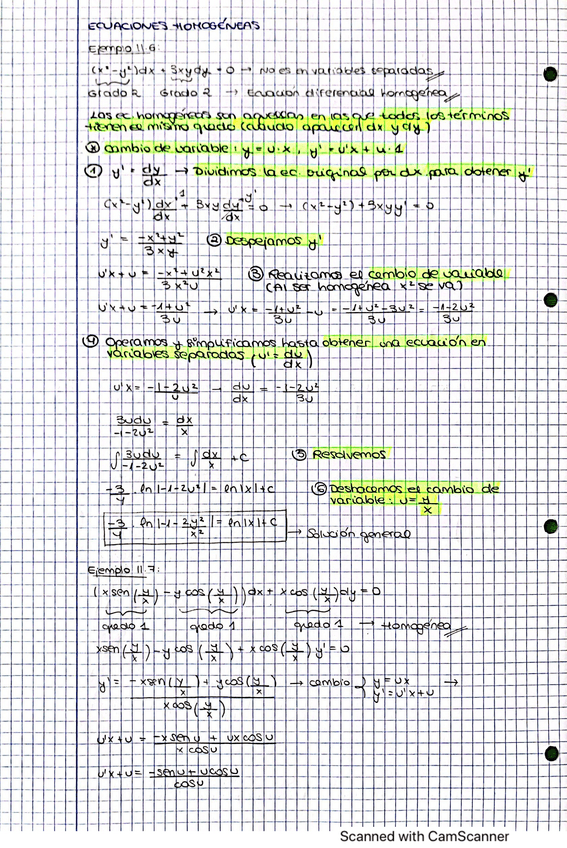 ECUACIONES HOMOGÉNEAS
Ejemplo 11.6:
(x²-y²)dx + 3xydy = 0 → No es en variables separadas
Grado 2 Grado 2 → Ecuación diferencial homogénea
Las ec. homogéneas son aquellas en las que todos los términos
tienen el mismo grado (cuando aparecen dx y dy)
* Cambio de variable: y = u·x, y' = u'x + u·1
① y' = dy/dx → Dividimos la ec. original por dx para obtener y'
(x²-y²)dx/dx + 3xy dy/dx = 0 → (x²-y²) + 3xyy' = 0
y' = -x²+y²/3xy ② Despejamos y'
u'x + u = -x²+u²x²/3x²u ③ Realizamos el cambio de variable
(Al ser homogénea x² se va)
u'x + u = -1+u²/3u → u'x = -1+u²/3u - u = -1+u²-3u²/3u = -1-2u²/3u
④ Operamos y simplificamos hasta obtener una ecuación en
variables separadas (u' = du/dx)
u'x = -1-2u²/u → du/dx = -1-2u²/3u
3udu/-1-2u² = dx/x
∫3udu/-1-2u² = ∫dx/x + C ⑤ Resolvemos
-3/4 · ln|-1-2u²| = ln|x|+C ⑥ Deshacemos el cambio de
variable: u = y/x
-3/4 · ln|-1-2y²/x²| = ln|x|+C → Solución general
Ejemplo 11.7:
(xsen(y/x) - ycos(y/x))dx + xcos(y/x)dy = 0
grado 1 grado 1 grado 1 → Homogénea
xsen(y/x) - ycos(y/x) + xcos(y/x)y' = 0
y' = -xsen(y/x) + ycos(y/x)/xcos(y/x) → cambio { y = ux y' = u'x+u →
u'x+u = -xsenu + uxcosu/xcosu
u'x+u = -senu+ucosu/cosu
Scanned with CamScanner